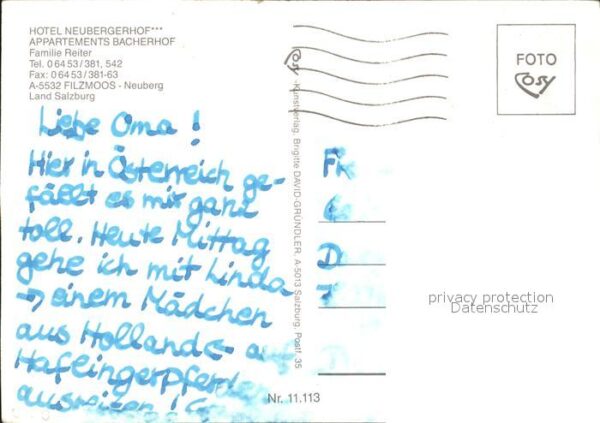 HOTEL NEUBERGERHOF***
APPARTEMENTS BACHERHOF
Familie Reiter
Tel. 0 64 53 / 381, 542
Fax: 0 64 53 / 381-63
A-5532 FILZMOOS - Neuberg
Land Salzburg
Liebe Oma !
Hier in Österreich ge-
fällt es mir ganz
toll. Heute Mittag
gehe ich mit Linda
-> einem Mädchen
aus Holland <- auf
Haflingerpferden
ausreiten !
Cosy - Kunstverlag, Brigitte DAVID-GRÜNDLER, A-5013 Salzburg, Postf. 35
Nr. 11.113
FOTO
Cosy
D
privacy protection
Datenschutz